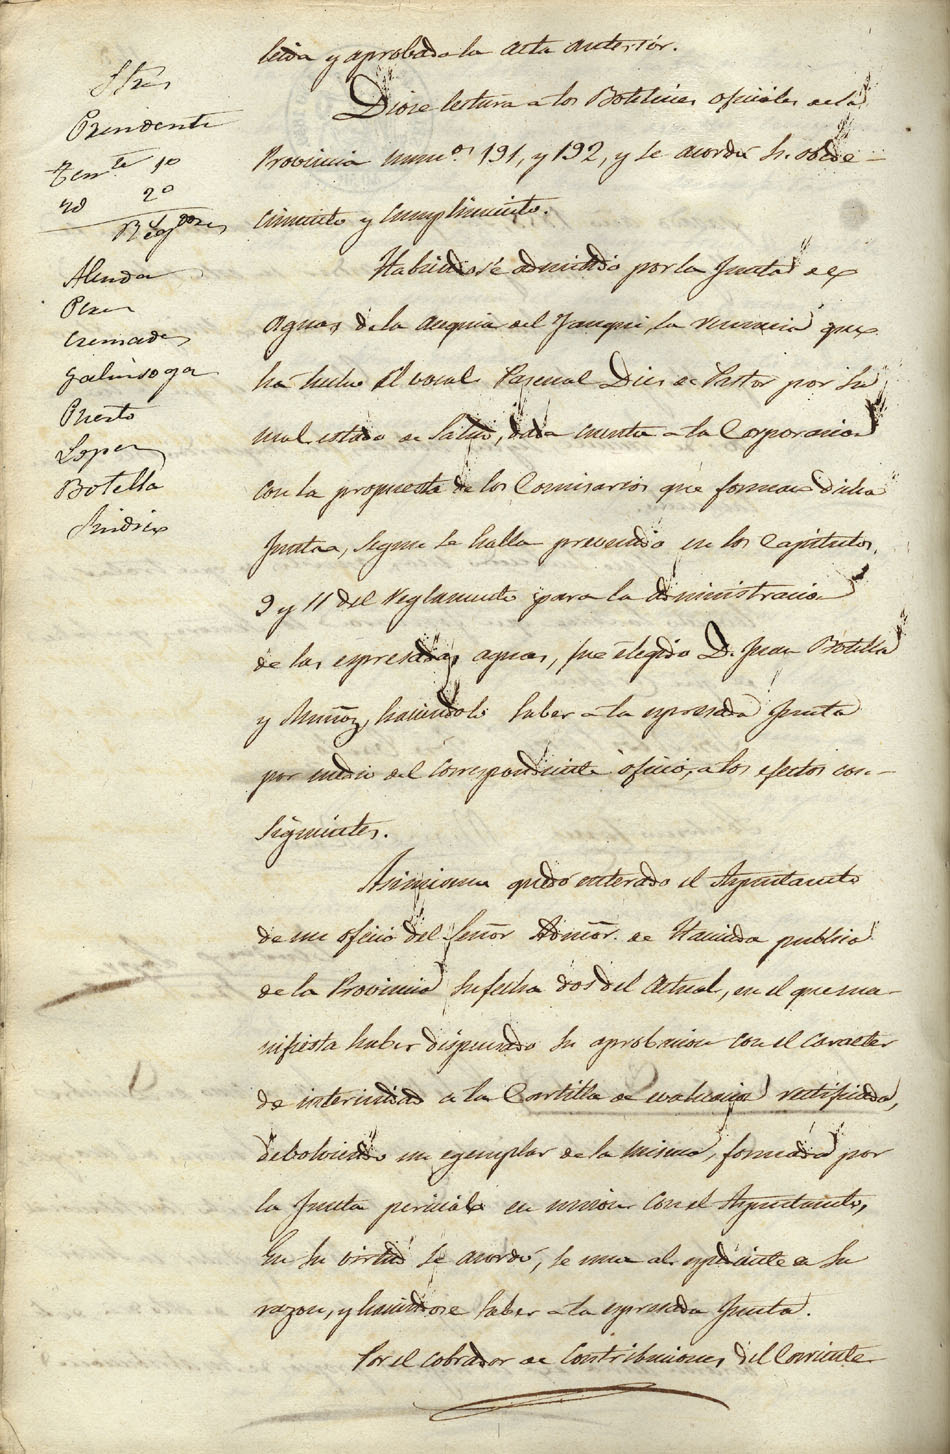 Sres
Presidente
Tente 1º
Yd 2º
Regores
Alenda
Perez
Cremades
Galinsoga
Puerto
Lopez
Botella
Sindico
leida y aprobada la acta anterior.
Diose lectura a los Boletines oficiales de la
Provincia numeos 191, y 192, y se acordó su obede-
cimiento y cumplimiento.
Habiendose admitido por la Junta de
aguas de la acequia del la renuncia que
ha hecho el vocal Pascual Dies de Pastor por su
mal estado de salud, dada cuenta a la Corporacion
con la propuesta de los Comisarios que forman dicha
Junta, segun se halla prevenido en los Capitulos
9 y 11 del Reglamento para la administracion
de las espresadas aguas, fue elegido D. Juan Botella
y Muñoz, haciendolo saber a la espresada Junta
por medio del correspondiente oficio, a los efectos con-
siguientes.
Asimismo quedó enterado el Ayuntamto
de un oficio del Señor Admor. de Hacienda publica
de la Provincia su fecha dos del actual, en el que ma-
nifiesta haber dispensado su aprobacion con el caracter
de interinidad a la Cartilla de evaluacion rectificada,
debolviendo un egemplar de la misma, formada por
la Junta pericial en union con el Ayuntamto,
En su virtud se acordó, se una al espediente de su
razon, y haciendose saber a la espresada Junta.
Por el cobrador de Contribuciones del Corriente